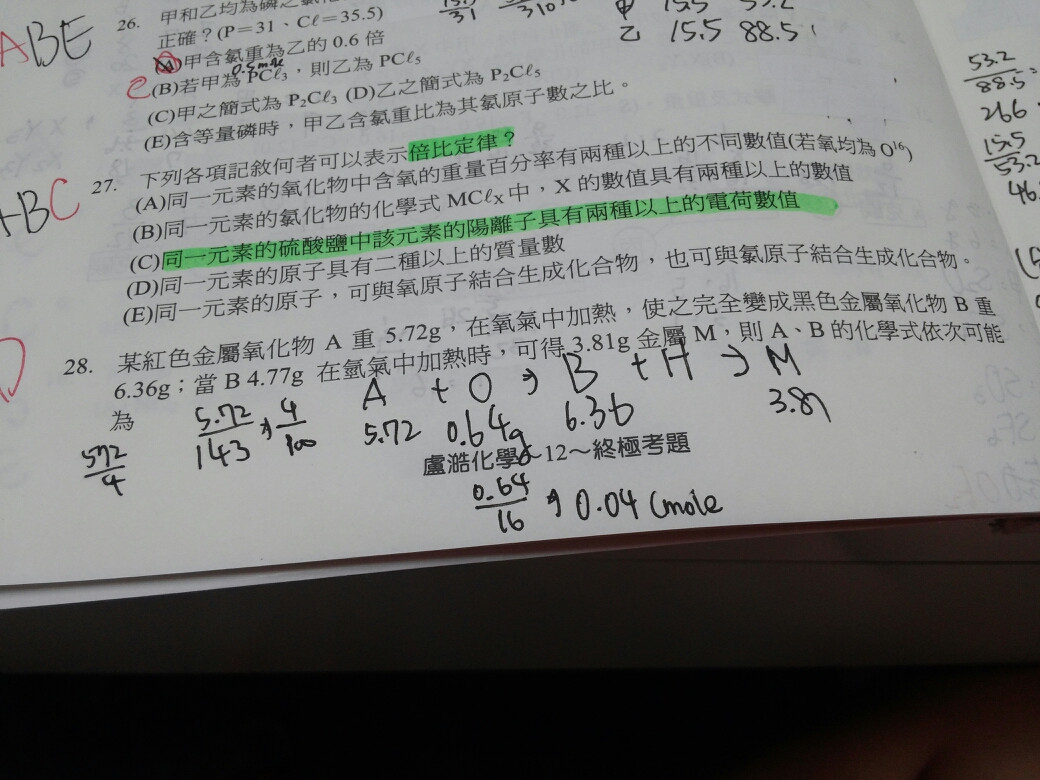 ABE
26. 甲和乙均為磷之氯
正確？(P=31、Cℓ=35.5)
(A)甲含氯重為乙的 0.6 倍
0.5mole
C (B)若甲為 PCℓ₃，則乙為 PCℓ₅
(C)甲之簡式為 P₂Cℓ₃ (D)乙之簡式為 P₂Cℓ₅
(E)含等量磷時，甲乙含氯重比為其氯原子數之比。
31
甲 15.5 53.2
乙 15.5 88.5
53.2
88.5 =
266
15.5
53.2
46.
ABC
27. 下列各項記敘何者可以表示倍比定律？
(A)同一元素的氧化物中含氧的重量百分率有兩種以上的不同數值(若氧均為 O¹⁶)
(B)同一元素的氯化物的化學式 MCℓₓ 中，X 的數值具有兩種以上的數值
(C)同一元素的硫酸鹽中該元素的陽離子具有兩種以上的電荷數值
(D)同一元素的原子具有二種以上的質量數
(E)同一元素的原子，可與氧原子結合生成化合物，也可與氯原子結合生成化合物。
D
28. 某紅色金屬氧化物 A 重 5.72g，在氧氣中加熱，使之完全變成黑色金屬氧化物 B 重
6.36g；當 B 4.77g 在氫氣中加熱時，可得 3.81g 金屬 M，則 A、B 的化學式依次可能
為
A + O → B + H → M
5.72 0.64g 6.36 3.81
5.72
143 → 4
100
572
4
盧澔化學 12～終極考題
0.64
16 → 0.04 (mole